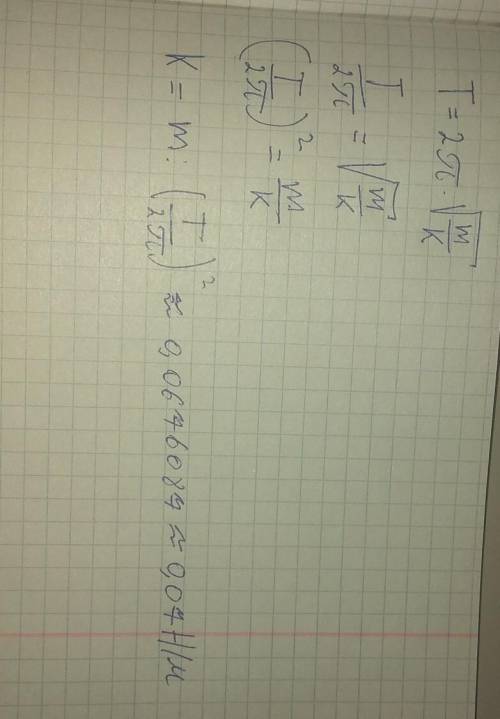 T = 2π · √(m/K)
T/2π = √(m/K)
(T/2π)² = m/K
K = m : (T/2π)² ≈ 0,0676087 ≈ 0,07 Н/м